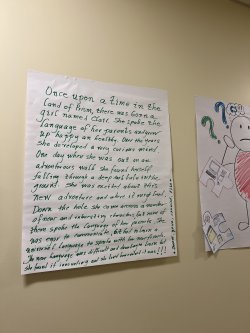 Once upon a time in the
land of Prism, there was born a
girl named Clare. She spoke the
language of her parents and grew
up happy an healthy. Over the years
she developed a very curious mind.
One day when she was out on an
adventurous walk she found herself
falling through a deep dark hole in the
ground. She was excited about this
new adventure and where it would lead.
Down the hole she came across a number
of new and interesting characters, but none of
them spoke the language of her parents. She
was eager to communicate, but had to learn a
universal language to speak with her new friends.
The new language was difficult and
she found it and she
? ?